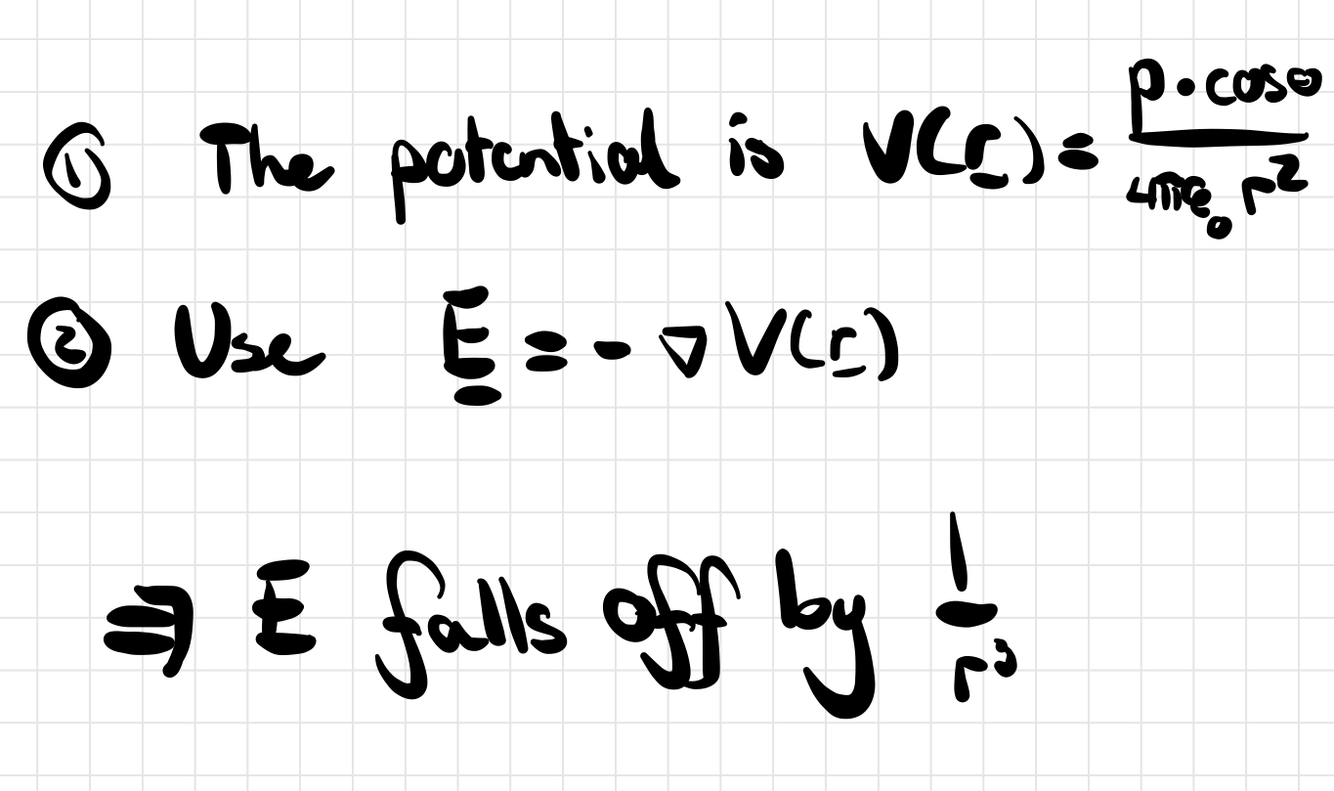 ① The potential is V(r) = p·cosθ / 4πε₀ r²
② Use E = -∇V(r)
⇒ E falls off by 1/r³